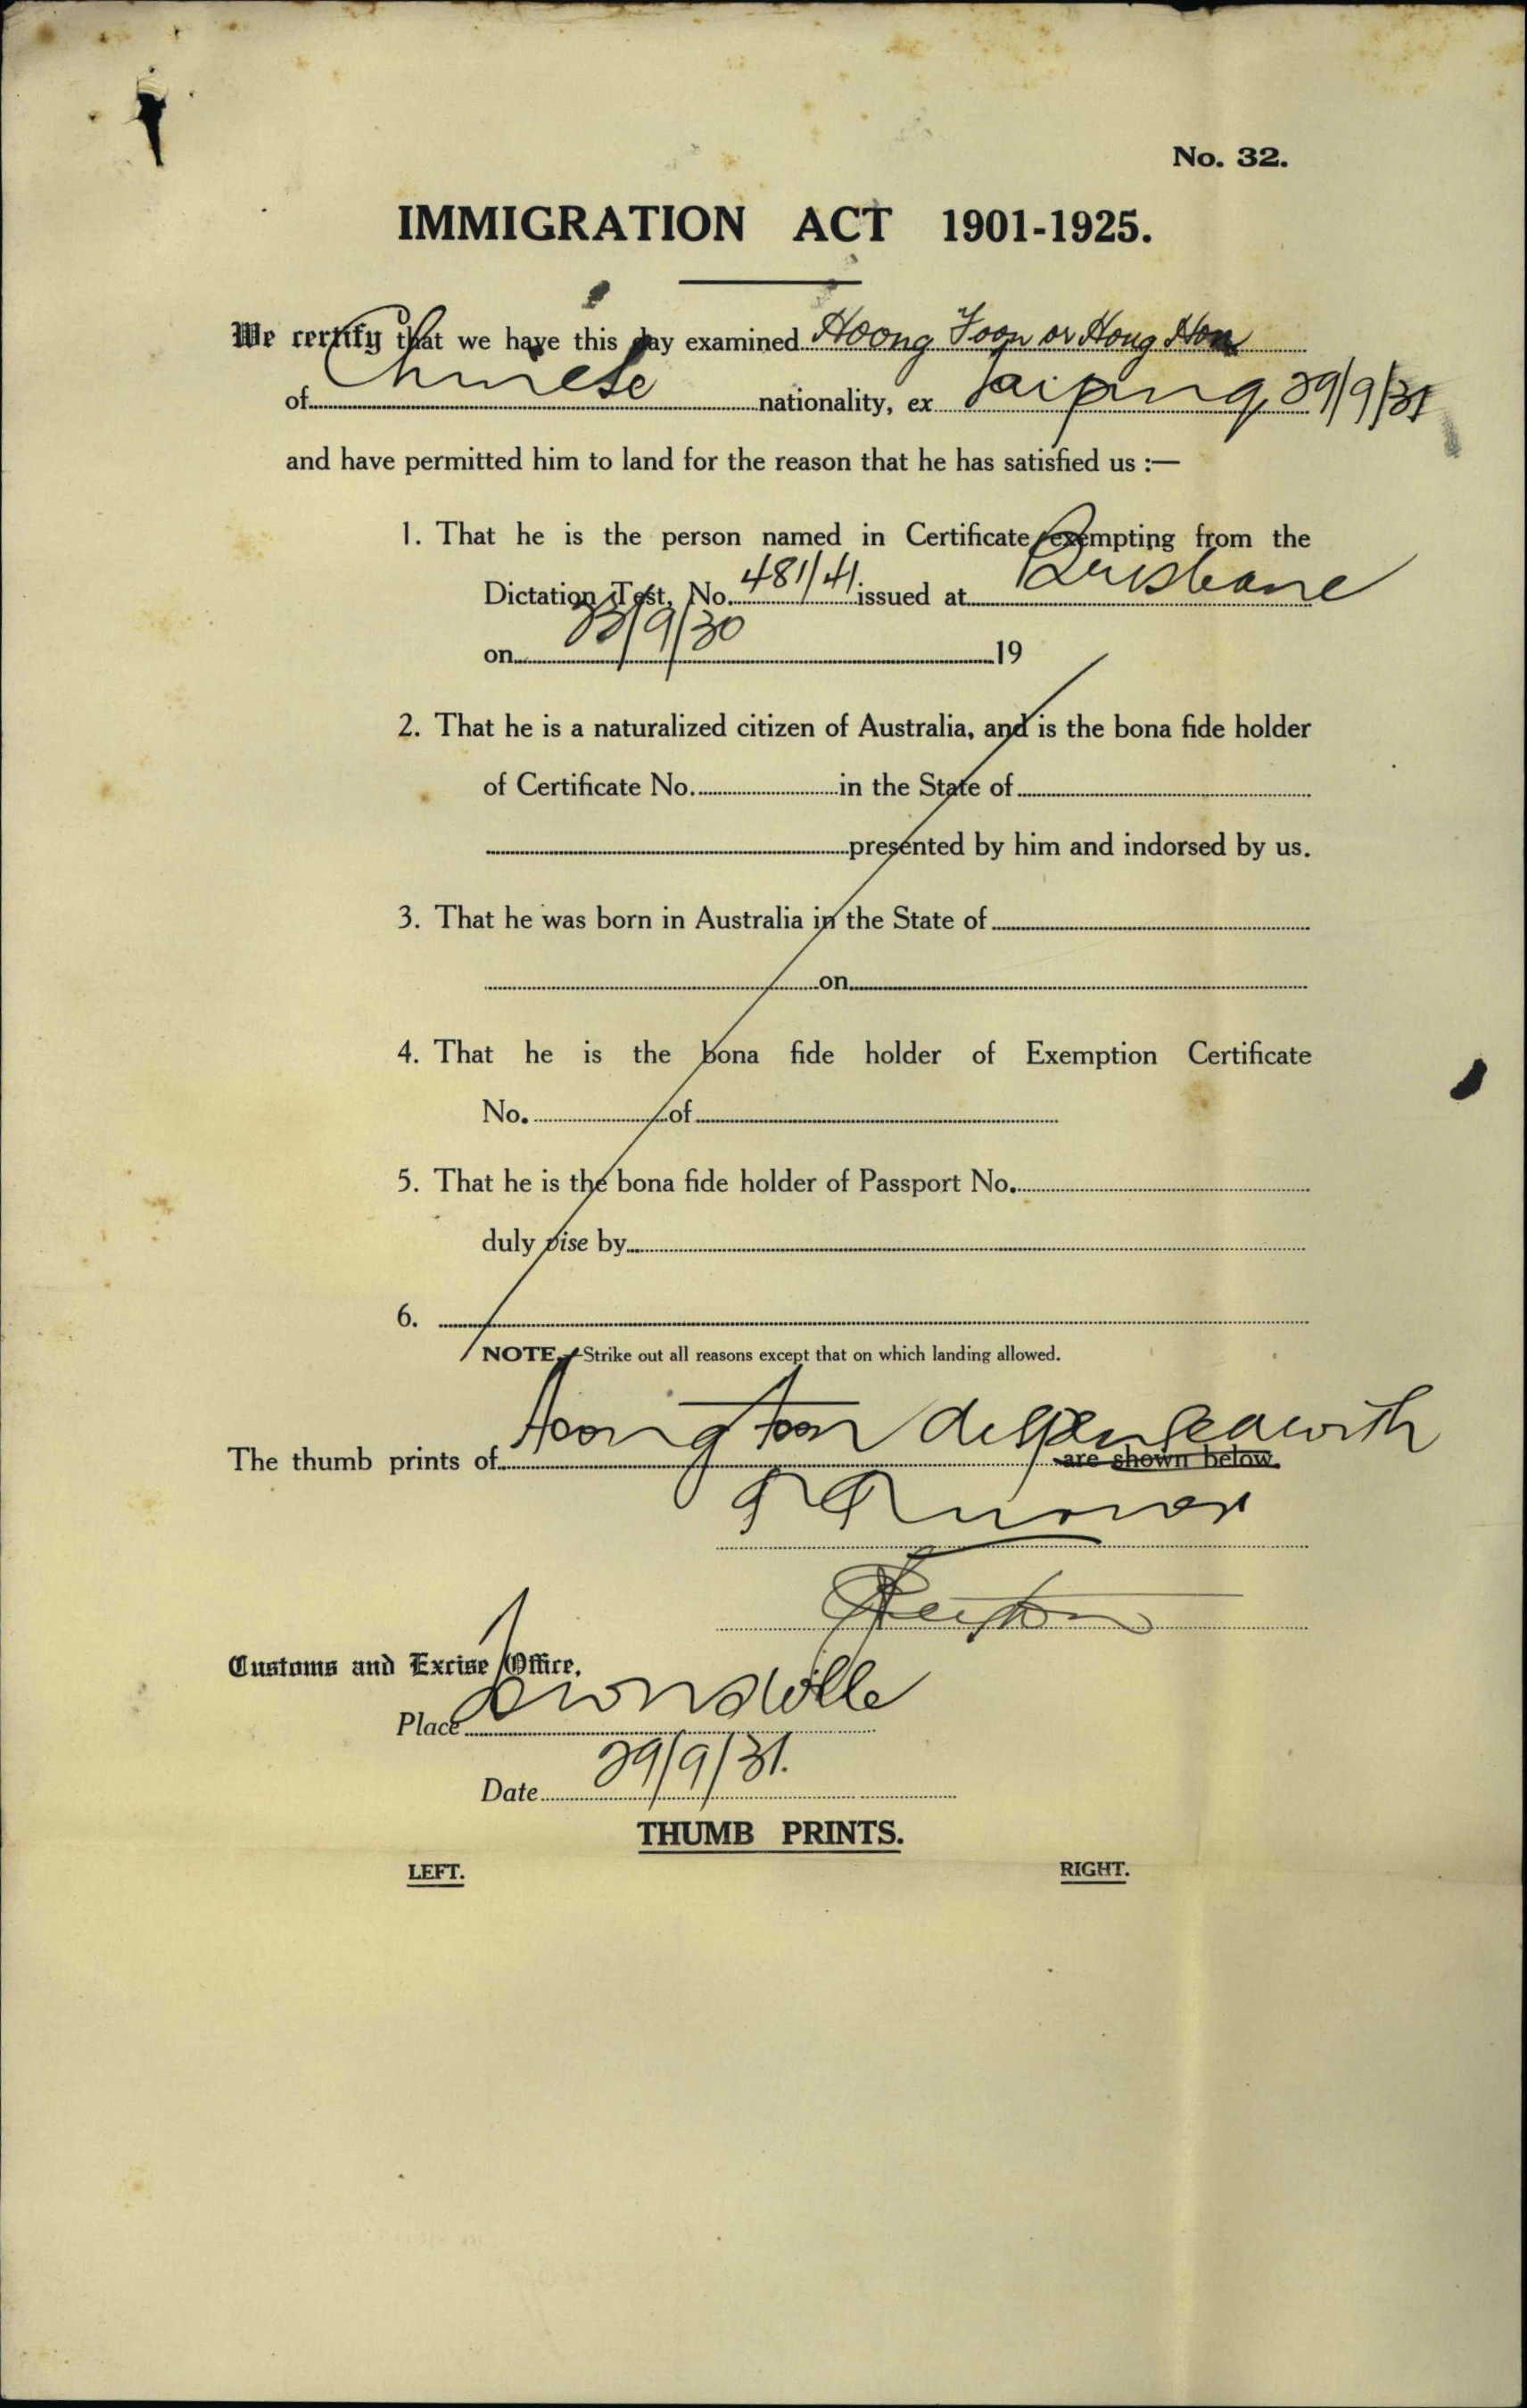 No. 32.
IMMIGRATION ACT 1901-1925.
We certify that we have this day examined Hoong Foon or Hong Hon
of Chinese nationality, ex Taiping, 29/9/31
and have permitted him to land for the reason that he has satisfied us :—
1. That he is the person named in Certificate exempting from the
Dictation Test, No. 481/41 issued at Brisbane
on 23/9/30 19
2. That he is a naturalized citizen of Australia, and is the bona fide holder
of Certificate No. in the State of
presented by him and indorsed by us.
3. That he was born in Australia in the State of
on
4. That he is the bona fide holder of Exemption Certificate
No. of
5. That he is the bona fide holder of Passport No.
duly vise by
6.
NOTE.—Strike out all reasons except that on which landing allowed.
The thumb prints of Hoong Foon dispensed with are shown below.
Customs and Excise Office,
Place Townsville
Date 29/9/31.
THUMB PRINTS.
LEFT. RIGHT.